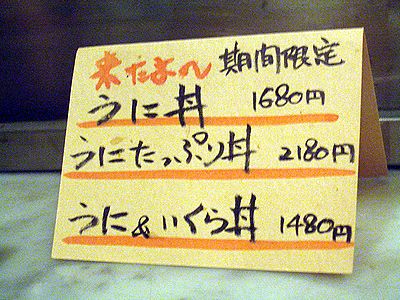 来たよ〜 期間限定
うに丼 1680円
うにたっぷり丼 2180円
うに&いくら丼 1480円